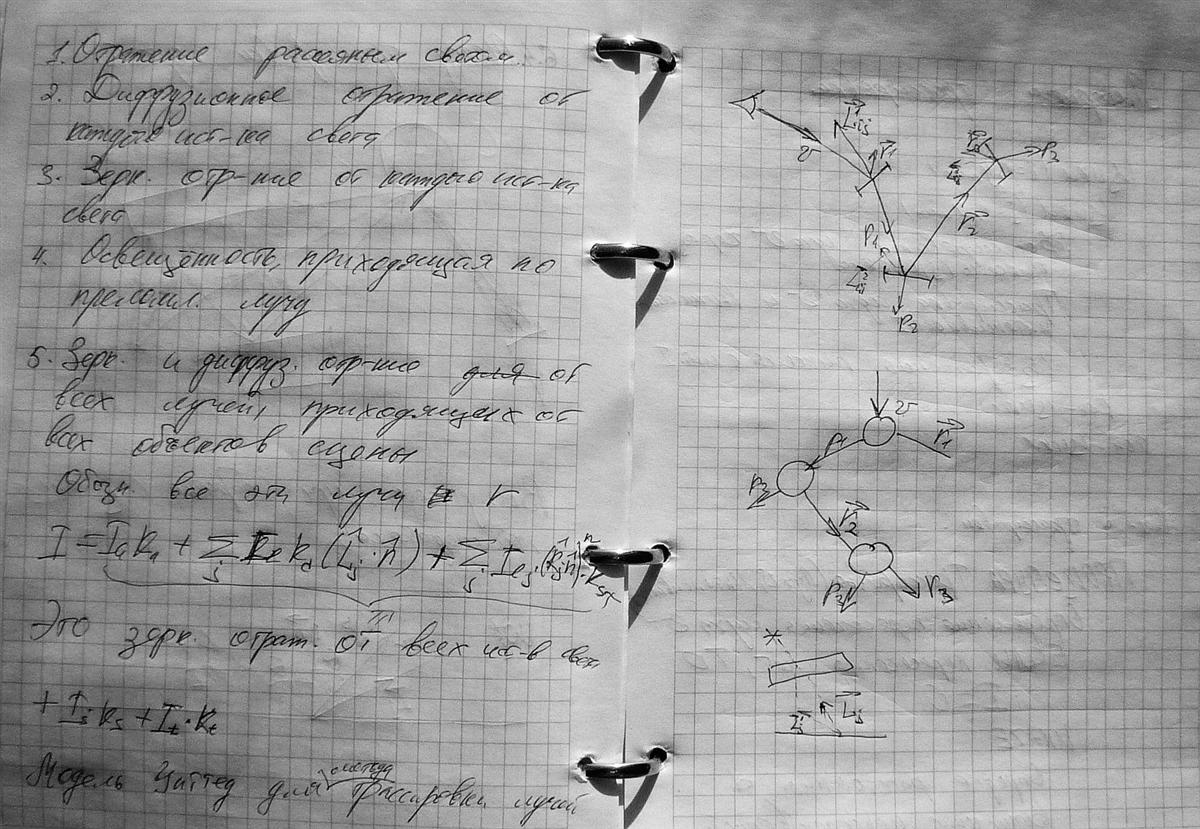 1. Отражение рассеяным светом.
2. Диффузионное отражение от
каждого ист-ка света
3. Зерк. отр-ние от каждого ист-ка
света
4. Освещённость, приходящая по
преломл. лучу
5. Зерк. и диффуз. отр-ние для от
всех лучей, приходящих от
всех объектов сцены
Обозн. все эти лучи r
I = Iₐkₐ + Σⱼ Iₑ k_d (L⃗ⱼ · n⃗) + Σⱼ Iₑⱼ · (R⃗ⱼ n⃗)ⁿ · k
Это зерк. отраж. от всех ист-в
+ Iₛ kₛ + Iₜ · kₜ
Модель Уиттед для метода трассировки лучей
v
r⃗1
P1
P2
r⃗2
P3
v
r⃗1
P1
P2
r⃗2
P3
r⃗3
L⃗ⱼ